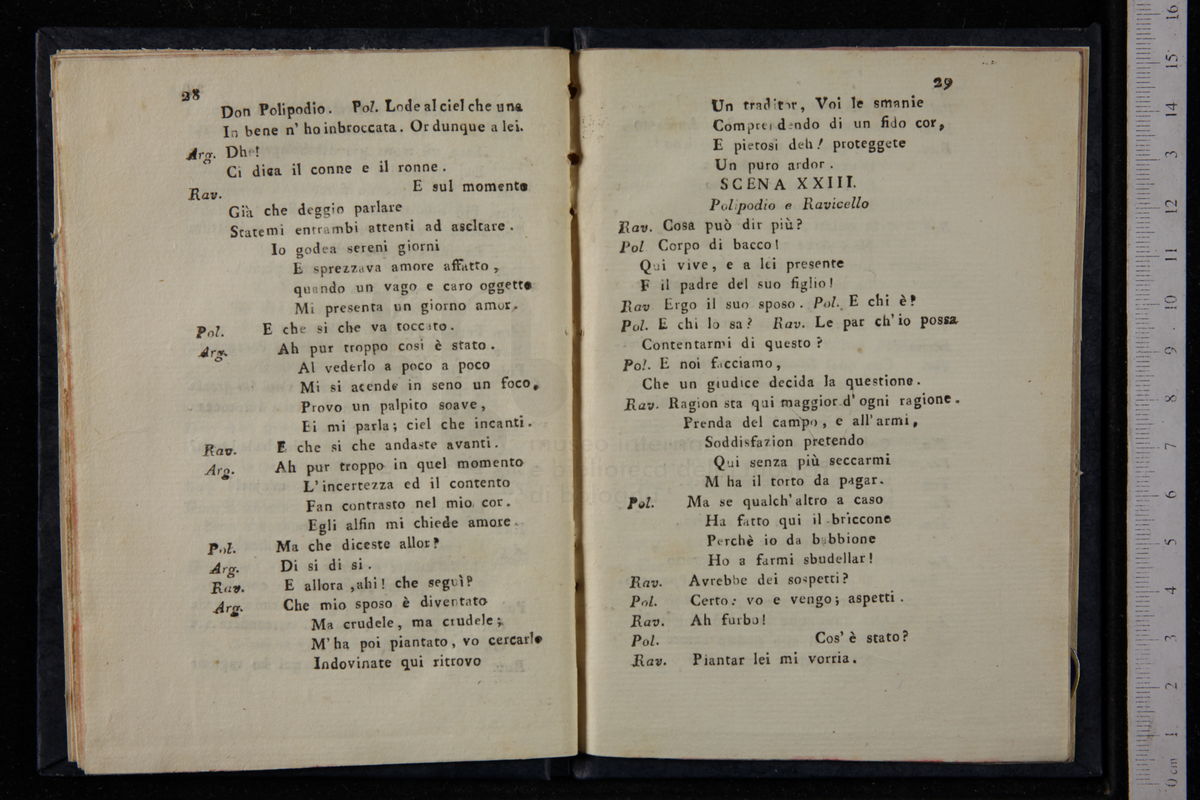 28
Don Polipodio. Pol. Lode al ciel che una
In bene n' ho inbroccata. Or dunque a lei.
Arg. Dhe!
Ci dica il conne e il ronne.
Rav. E sul momento
Già che deggio parlare
Statemi entrambi attenti ad ascltare.
Io godea sereni giorni
E sprezzava amore affatto,
quando un vago e caro oggetto
Mi presenta un giorno amor.
Pol. E che si che va toccato.
Arg. Ah pur troppo così è stato.
Al vederlo a poco a poco
Mi si acende in seno un foco,
Provo un palpito soave,
Ei mi parla; ciel che incanti.
Rav. E che si che andaste avanti.
Arg. Ah pur troppo in quel momento
L'incertezza ed il contento
Fan contrasto nel mio cor.
Egli alfin mi chiede amore.
Pol. Ma che diceste allor?
Arg. Di si di si.
Rav. E allora, ahi! che seguì?
Arg. Che mio sposo è diventato
Ma crudele, ma crudele;
M'ha poi piantato, vo cercarlo
Indovinate qui ritrovo
29
Un traditor, Voi le smanie
Comprendendo di un fido cor,
E pietosi deh! proteggete
Un puro ardor.
SCENA XXIII.
Polipodio e Ravicello
Rav. Cosa può dir più?
Pol. Corpo di bacco!
Qui vive, e a lei presente
E il padre del suo figlio!
Rav Ergo il suo sposo. Pol. E chi è?
Pol. E chi lo sa? Rav. Le par ch'io possa
Contentarmi di questo?
Pol. E noi facciamo,
Che un giudice decida la questione.
Rav. Ragion sta qui maggior d'ogni ragione.
Prenda del campo, e all'armi,
Soddisfazion pretendo
Qui senza più seccarmi
M ha il torto da pagar.
Pol. Ma se qualch'altro a caso
Ha fatto qui il briccone
Perchè io da babbione
Ho a farmi sbudellar!
Rav. Avrebbe dei sospetti?
Pol. Certo: vo e vengo; aspetti.
Rav. Ah furbo!
Pol. Cos'è stato?
Rav. Piantar lei mi vorria.